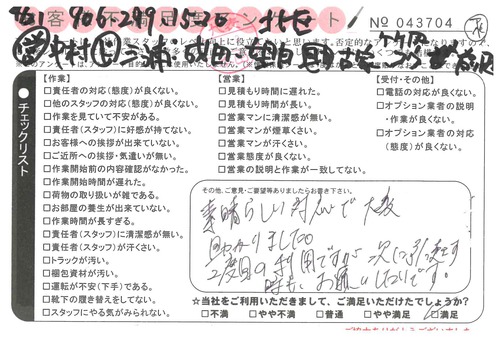 No 043704
チェックリスト
【作業】
□責任者の対応(態度)が良くない。
□他のスタッフの対応(態度)が良くない。
□作業を見ていて不安がある。
□責任者(スタッフ)に好感が持てない。
□お客様への挨拶が出来ていない。
□ご近所への挨拶・気遣いが無い。
□作業開始前の内容確認がなかった。
□作業開始時間が遅れた。
□荷物の取り扱いが雑である。
□お部屋の養生が出来ていない。
□作業時間が長すぎる。
□責任者(スタッフ)に清潔感が無い。
□責任者(スタッフ)が汗くさい。
□トラックが汚い。
□梱包資材が汚い。
□運転が不安(下手)である。
□靴下の履き替えをしてない。
□スタッフにやる気がみられない。
【営業】
□見積もり時間に遅れた。
□見積もり時間が長い。
□営業マンに清潔感が無い。
□営業マンが煙草くさい。
□営業マンが汗くさい。
□営業態度が良くない。
□営業の説明と作業が一致してない。
【受付・その他】
□電話の対応が良くない。
□オプション業者の説明・作業が良くない。
□オプション業者の対応(態度)が良くない。
その他、ご意見・ご要望等ありましたらお書き下さい。
素晴らしい対応で大変
助かりました。
2度目の利用ですが次に引っ越す
時も、お願いしたいです。
☆当社をご利用いただきまして、ご満足いただけたでしょうか?
□不満 □やや不満 □普通 □やや満足 □満足
ご協力ありがとうございました